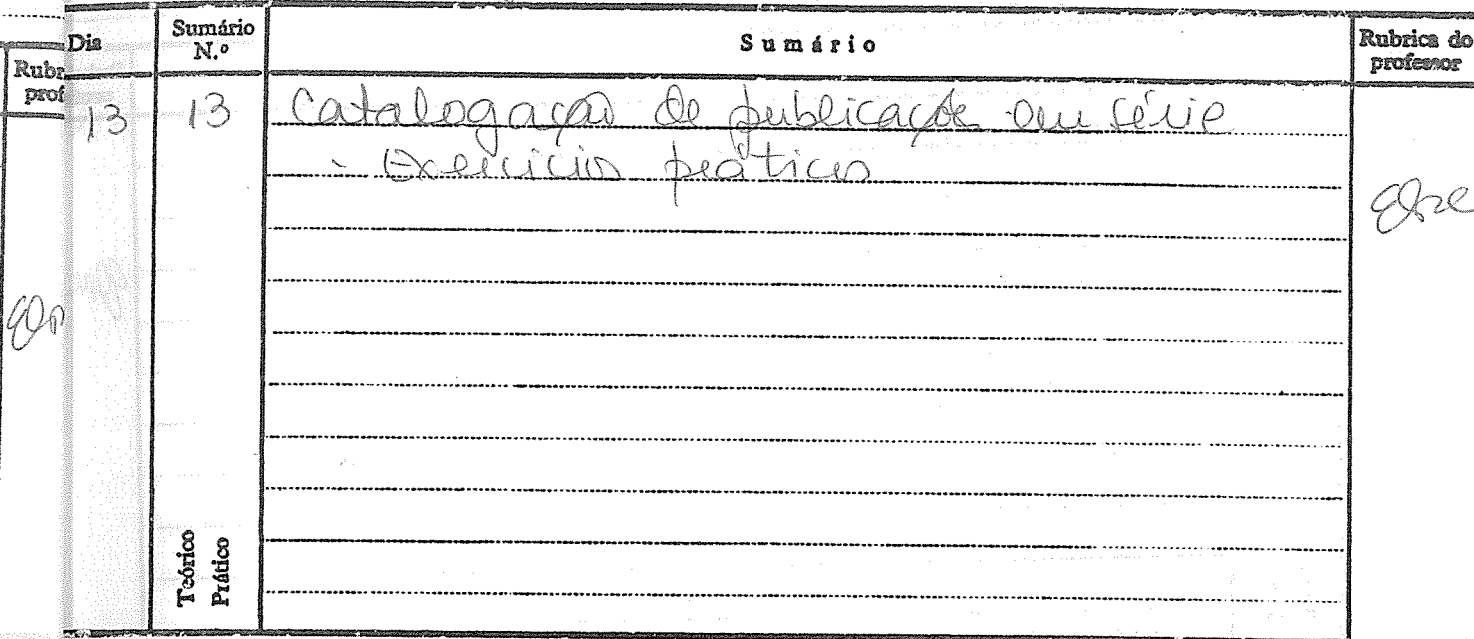 Rubr
prof
Dia
Sumário N.º
Sumário
Rubrica do professor
13
13
Catalogação de publicações em série
- Exercícios práticos
Teórico
Prático